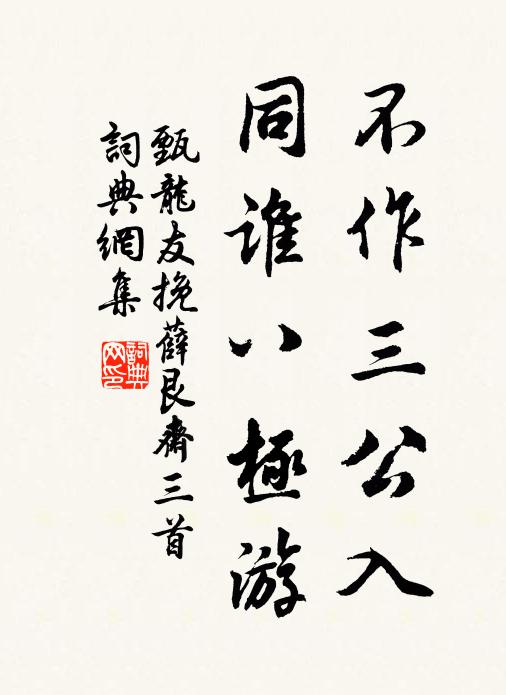 不作三公入
同谁八極游
甄龍友挽薛艮齋三首
詞典網集
詞典网印